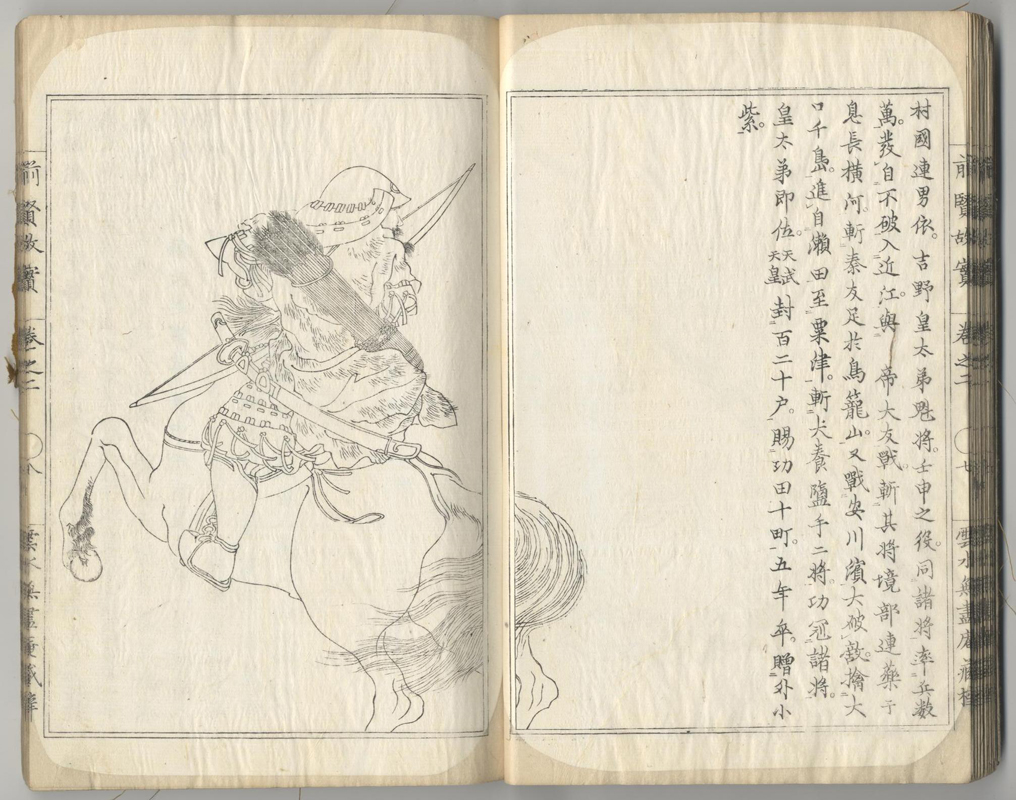 村國連男依。吉野皇太弟麾將。壬申之役。同諸將率兵數
萬。發自不破入近江。與 帝大友戰。斬其將境部連藥于
息長橫河。斬秦友足於鳥籠山。又戰安川濱大破敵。擒大
口千島。進自瀨田至粟津。斬犬養鹽手二將。功冠諸將。
皇太弟即位。天武天皇封百二十户。賜功田十町。五年卒。贈外小
紫。
前賢故實 卷之二 七 雲水無盡庵藏梓
前賢故實 卷之二 八